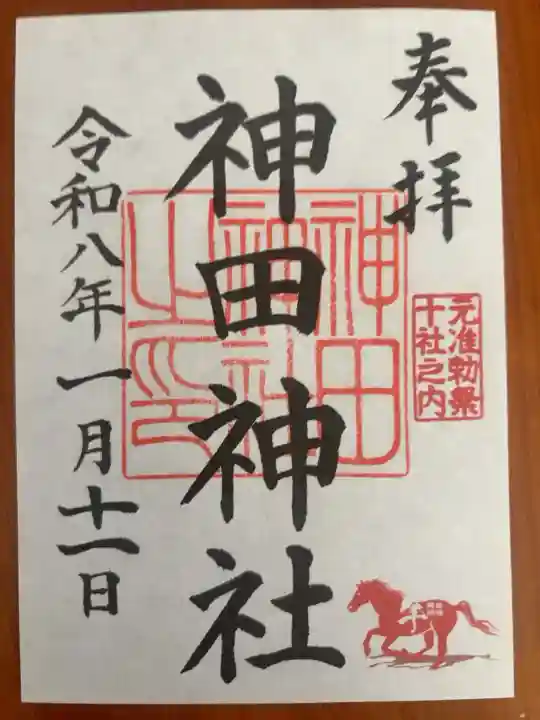 奉拝
元准勅祭
十社之内
神田神社
神田
神社
之印
令和八年一月十一日